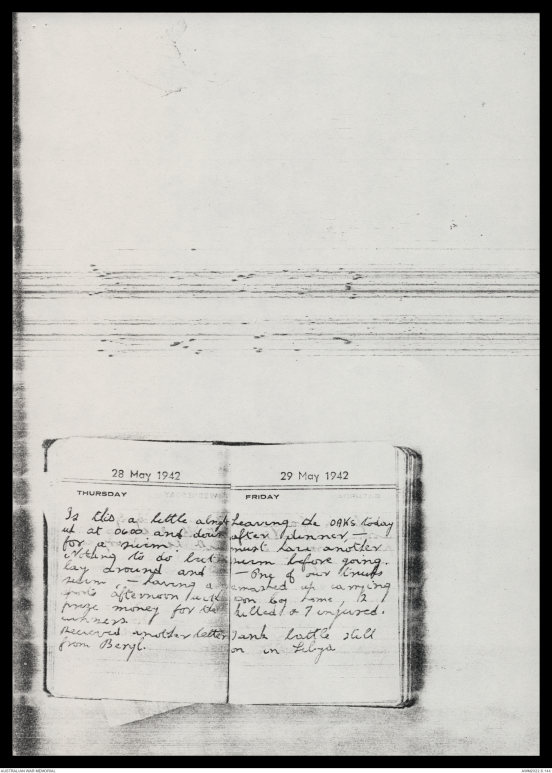 28 May 1942
THURSDAY
Is this a little
up at 0600 and down
for a swim
Nothing to do but
lay around and
swim, – having a
sports afternoon with
prize money for the
winners.
Received another letter
from Beryl.
29 May 1942
FRIDAY
Leaving the OAKS today
after dinner, –
must have another
swim before going.
– One of our trucks
smashed up carrying
home, 2
killed & 7 injured.
Tank battle still
on in Libya
AUSTRALIAN WAR MEMORIAL